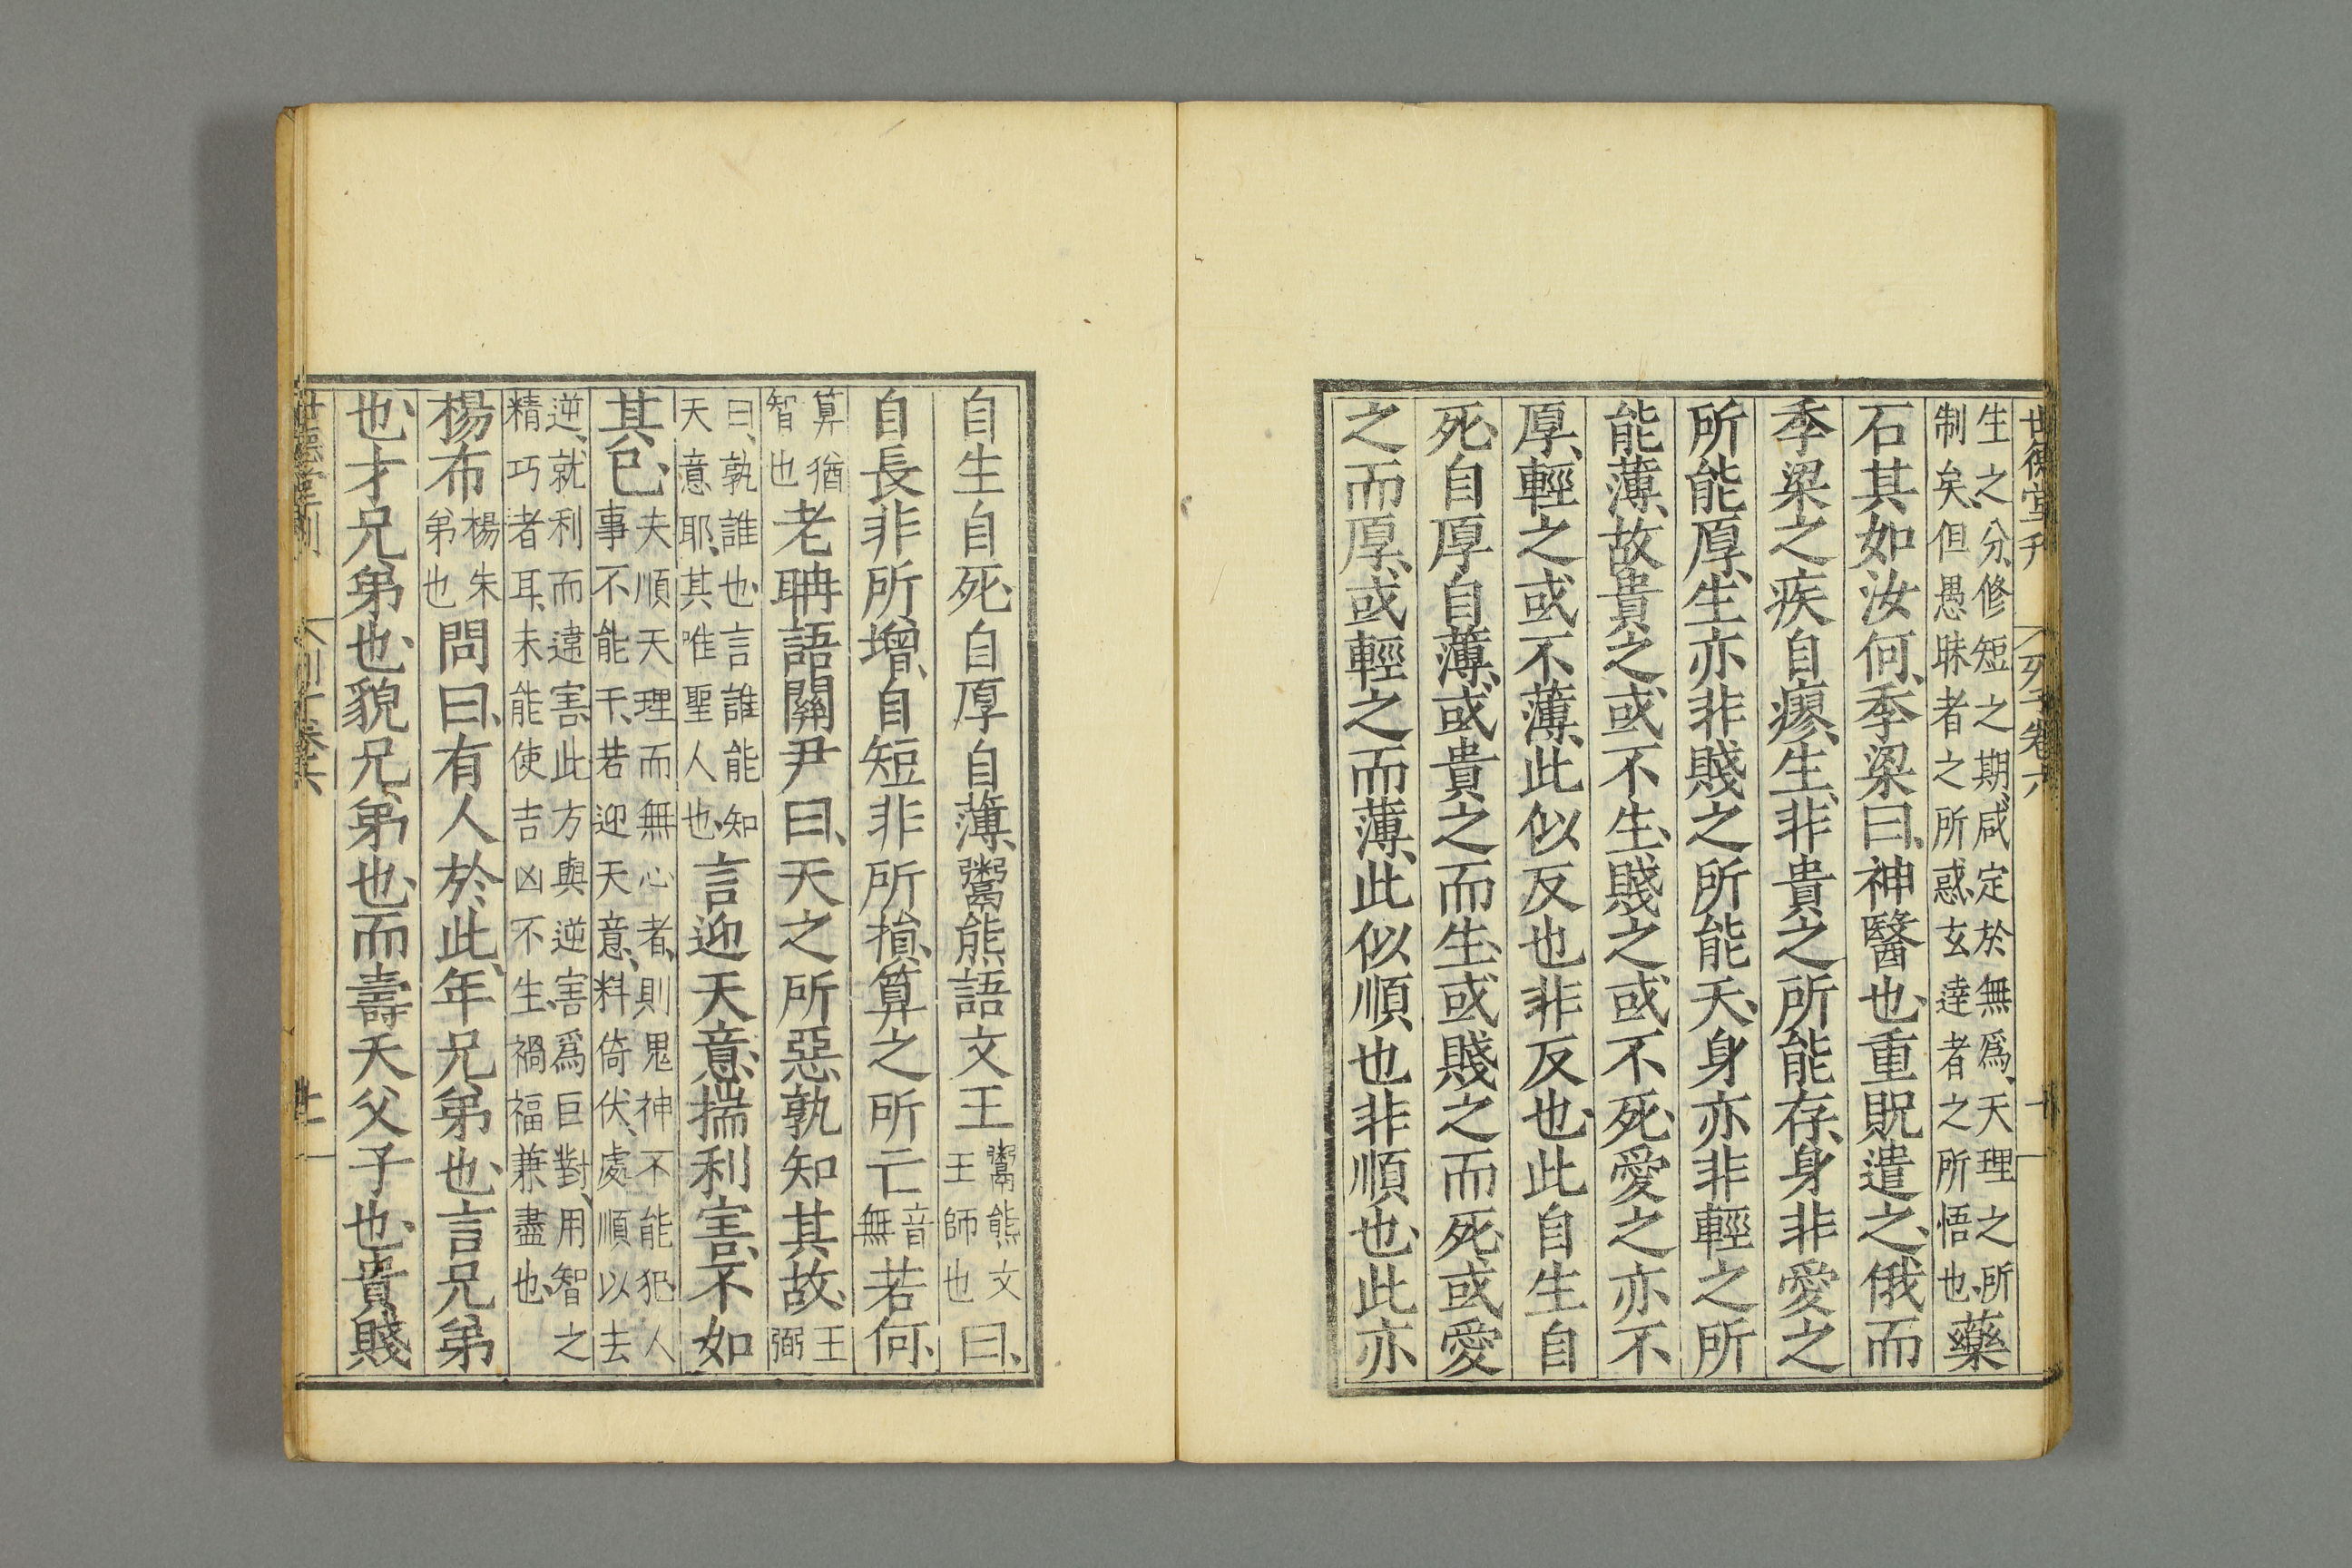 世德堂刊 列子卷六 十
生之分、修短之期、咸定於無爲、天理之所
制矣、但愚昧者之所惑、玄達者之所悟也、
藥
石其如汝何、季梁曰、神醫也、重貺遣之、俄而
季梁之疾自瘳、生、非貴之所能存、身非愛之
所能厚、生亦非賤之所能夭、身亦非輕之所
能薄、故貴之或不生、賤之或不死、愛之亦不
厚、輕之或不薄、此似反也非反也、此自生自
死、自厚自薄、或貴之而生、或賤之而死、或愛
之而厚、或輕之而薄、此似順也非順也、此亦
自生自死、自厚自薄、鬻熊語文王
鬻熊文
王師也
曰、
自長非所增、自短非所損、算之所亡
音
無
若何、
算猶
智也
老聃語關尹曰、天之所惡、孰知其故、
王
弼
曰、孰誰也、言誰能知
天意耶、其唯聖人也、
言迎天意、揣利害、不如
其已、
夫順天理而無心者、則鬼神不能犯、人
事不能干、若迎天意、料倚伏、處順以去
逆、就利而違害、此方與逆害爲巨對、用智之
精巧者耳、未能使吉凶不生、禍福兼盡也、
楊布
楊朱
弟也
問曰、有人於此、年兄弟也、言兄弟
也、才兄弟也、貌兄弟也、而壽夭父子也、貴賤
世德堂刊 列子卷六 十一